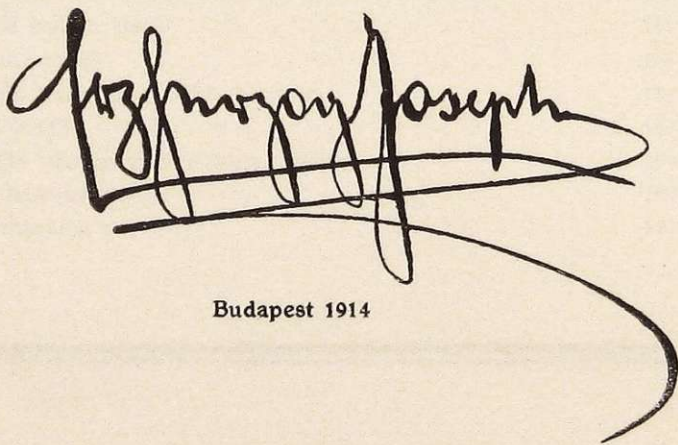 Erzherzog Joseph
Budapest 1914